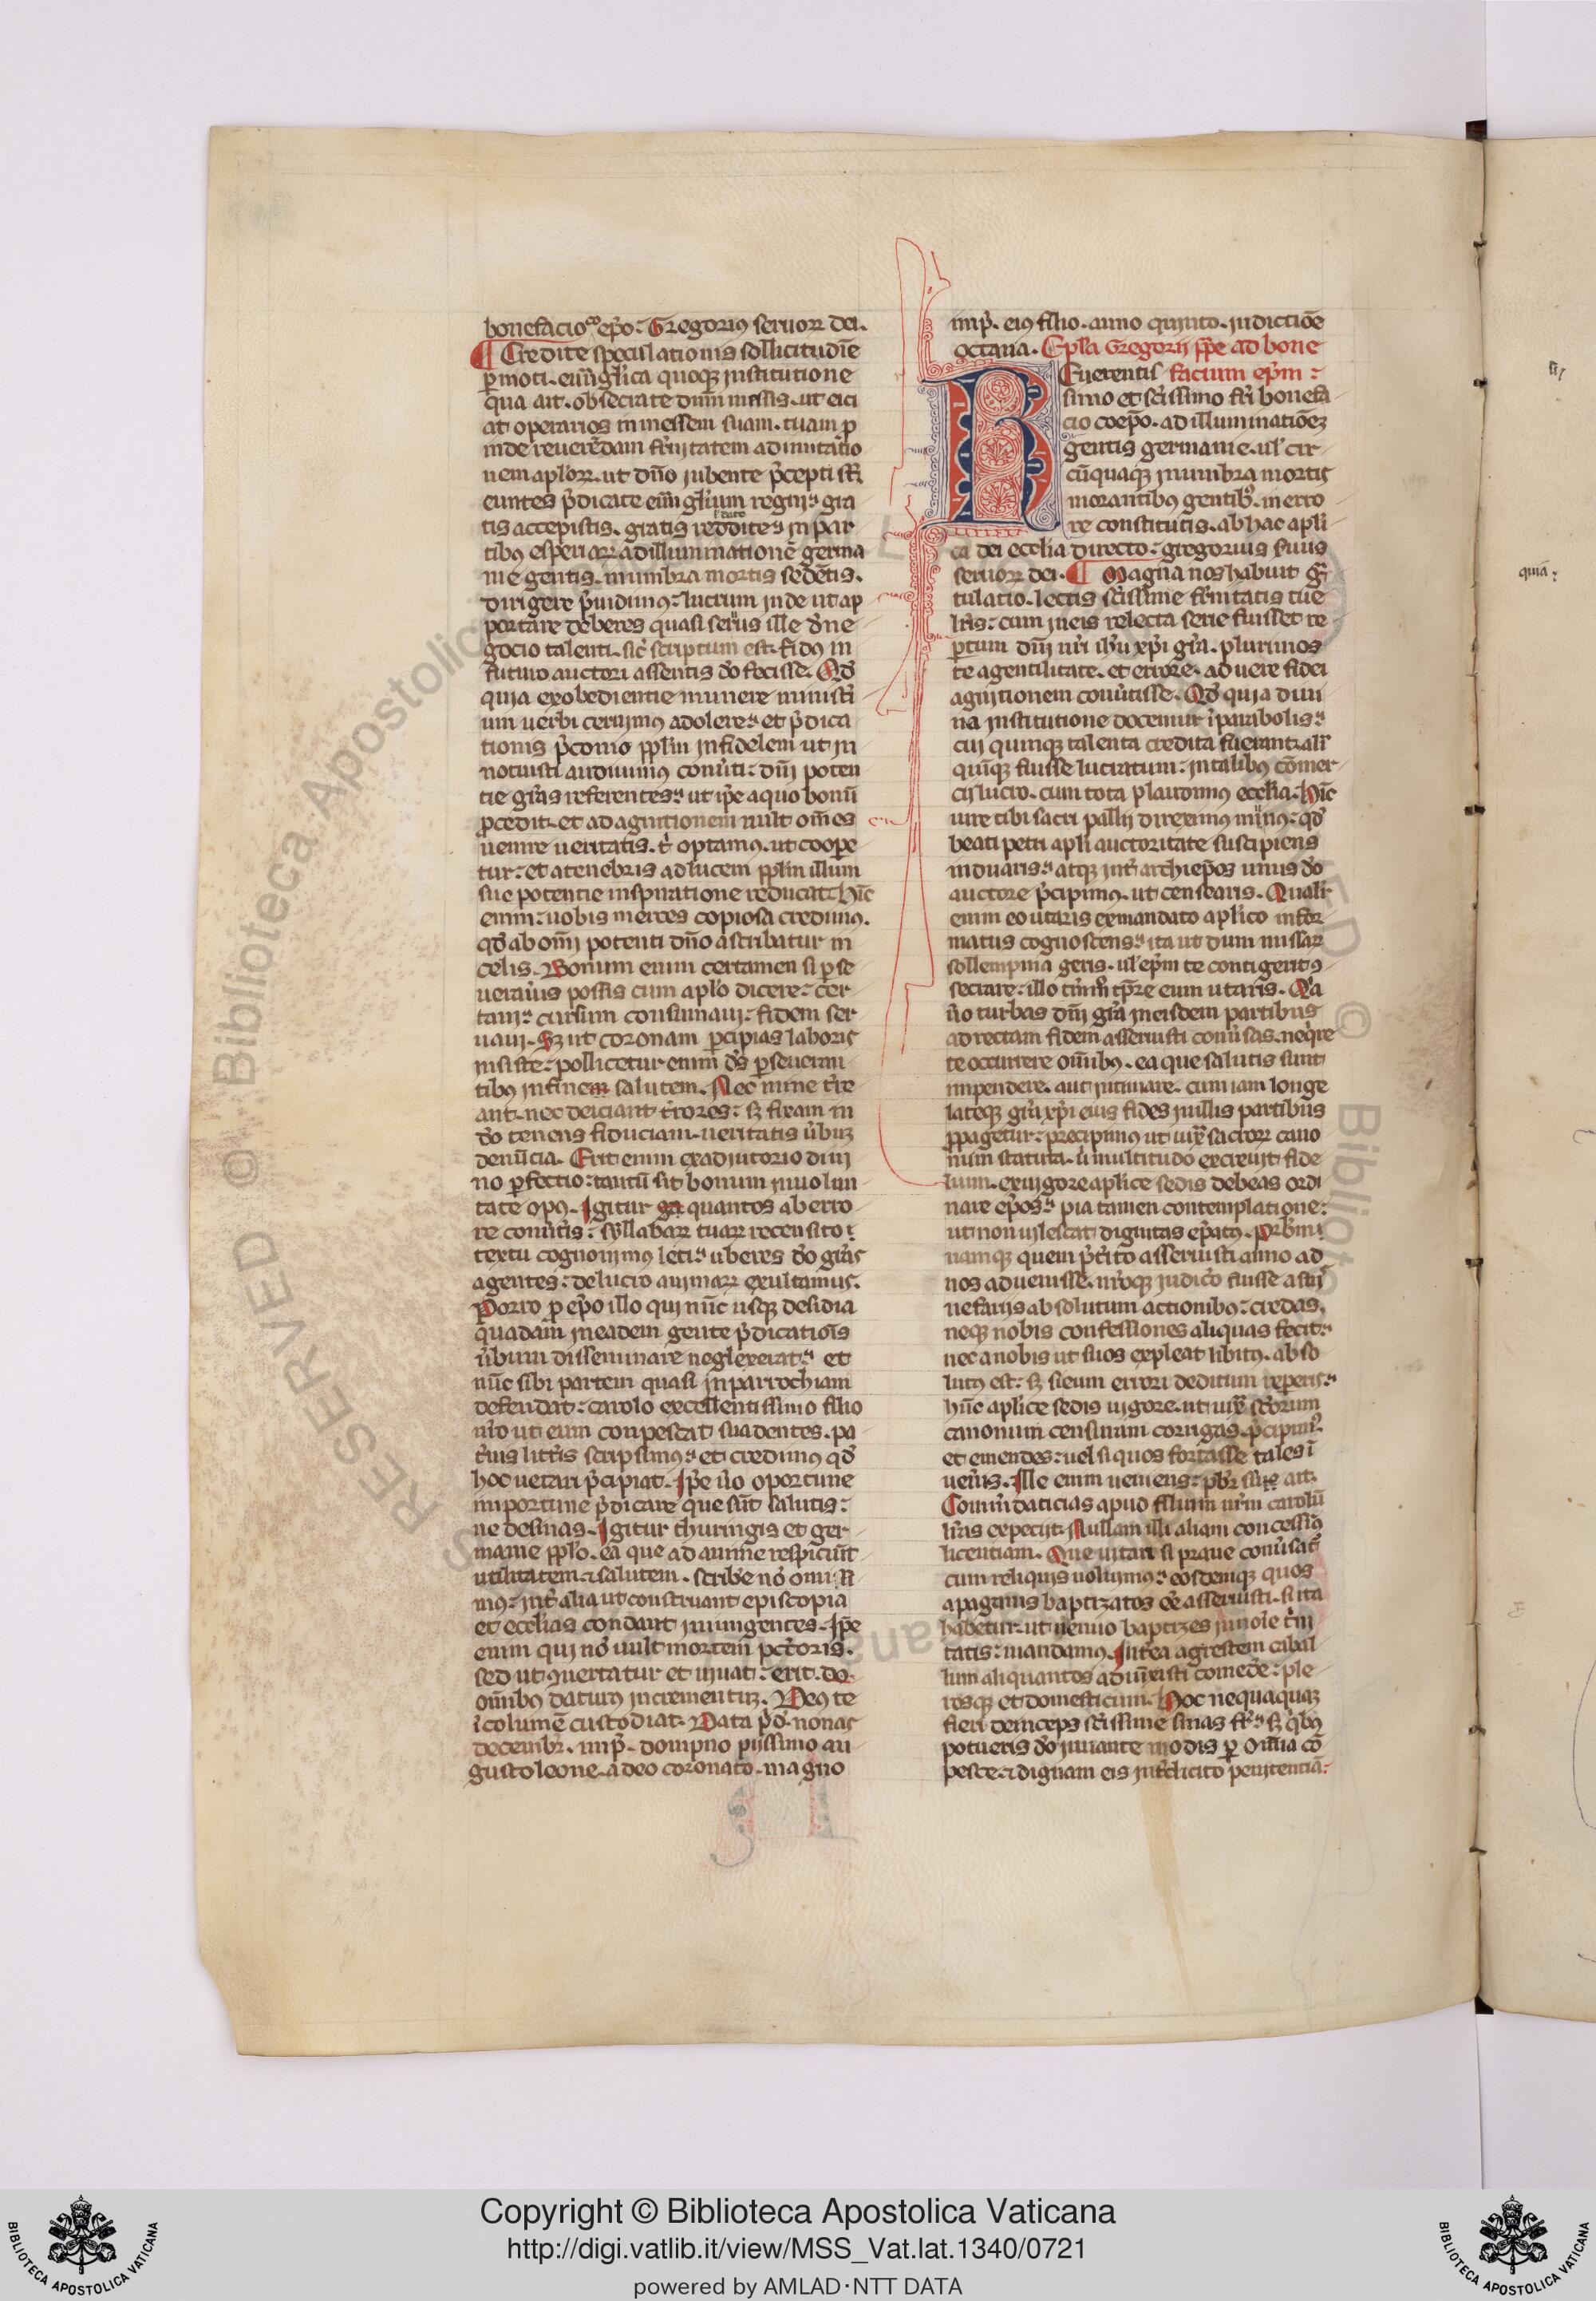 bonefacio coep̄o. Gregorius seruoꝝ dei.
¶ Credite speculationis sollicitudīe
ꝑmoti. euāg̃lica quoqꝫ institutione
qua ait. obsecrate dnm̄ messis. ut eici
at operarios in messem suam. tuam ꝑ
inde reuerēdam fr̄nitatem ad imitatio
nem apl̓oꝝ. ut dn̄o iubente p̄cepti sūt
euntes p̄dicate euāg̃lium regni. gra
tis accepistis. gratis reddite. in par
tibꝰ esperiaꝝ ad illuminationē germa
nie gentis. in umbra mortis sedētis.
dirigere p̄uidimꝰ: lucrum inde ut ap
portare deberes quasi seruus ille d̓ ne
gocio talenti. sic̄ scriptum est. fidꝰ in
futuro auctori assentis d̓o fecisse. Qd̓
quia ex obedientie munere ministi
um uerbi cernimꝰ adolere. et p̄dica
tionis p̄conio ppl̓m infidelem ut in
notuisti audiuimꝰ conu̓ti: dn̄i poten
tie gr̄as referentes. ut ip̄e a quo bonū
ꝓcedit. et ad agnitionem uult om̄es
uenire ueritatis. t̓ optamꝰ. ut coope
tur: et a tenebris ad lucem ppl̓m illum
sue potentie inspiratione reducat. Hīc
enim: uobis merces copiosa credimꝰ.
qd̓ ab om̄i potenti dn̄o ascribatur in
celis. Bonum enim certamen si ꝑse
uerau̓is possis cum apl̓o dicere: cer
tam. cursum consumaui: fidem ser
uaui. Sꝫ ut coronam ꝑcipias laboris
insiste: pollicetur enim ds̄ ꝑseueran
tibꝰ in finem salutem. Nec mine t̓re
ant. nec deiciant t̓rores: sꝫ fixam in
d̓o tenens fiduciam. ueritatis u̓bum
denūcia. Erit enim ex adiutorio diui
no ꝑfectio: tantū sit bonum in uolun
tate opꝰ. Igitur quantos ab erro
re conu̓tis: syllabaꝝ tuaꝝ recensito
textu cognouimꝰ leti. uberes d̓o gr̄as
agentes: de lucro animaꝝ exultamus.
Porro ꝑ ep̄o illo qui nūc usqꝫ desidia
quadam in eadem gente p̄dicatiois
u̓bum disseminare neglexerat. et
nūc sibi partem quasi in parrochiam
defendat: carolo excellentissimo filio
nr̄o ut eum conpescat suadentes. pa
t̓nis litt̓is scripsimꝰ. et credimꝰ qd̓
hoc uetari p̄cipiat. Ip̄e u̓o oportune
importune p̄dicare que sūt salutis:
ne desinas. Igitur thuringis et ger
manie ppl̓o. ea que ad anime respiciūt
utilitatem. ⁊ salutem. scribe nō omisi
mꝰ: int̓ alia ut construant episcopia
et ecclias condant iniungentes. Ip̄e
enim qui nō uult mortem pcc̄toris.
sed ut ꝯuertatur et uiuat: erit. do.
om̄ibꝰ daturꝰ incrementum. Deꝰ te
ĩcolumē custodiat. Data p̄d̓. nonas
decembr̄. imp̄. dompno piissimo au
gusto leone. a deo coronato. magno
imp̄. eiꝰ filio. anno quinto. indictiōe
octaua. Epl̓a Gregorij pp̄e ad bone
Reuerentis facium ep̄m:
simo et sc̄issimo fr̄i bonefa
cio coep̄o. ad illuminatiōeꝫ
gentis germanie. ul̓ cir
cū quaqꝫ in umbra mortis
morantibus gentibꝰ. in erro
re constitutis. ab hac apl̓i
ca dei ecclia directo: gregorius s̓uus
seruoꝝ dei. ¶ Magna nos habuit gr̄a
tulatio. lectis sc̄issime fr̄nitatis tue
lr̄is: cum in eis relecta serie fuisset re
ꝑtum dn̄i nr̄i ih̄u xp̄i gr̄a. plurimos
te a gentilitate. et errore. ad uere fidei
agnitionem conu̓tisse. Qd̓ quia diui
na institutione docemur ĩ parabolis.
cui quinqꝫ talenta credita fuerant. alr̓
quīqꝫ fuisse lucratum: in talibꝰ cōmer
cij lucro. cum tota plaudimus ecclia. Hīc
iure tibi sacri pallij direximus munꝰ: qd̓
beati petri apl̓i auctoritate suscipiens
induaris. atqꝫ int̓ archiep̄os unus d̓o
auctore p̄cipimꝰ. ut censearis. Qualit̓
enim eo utaris ex mandato apl̓ico infor
matus cognoscens. ita ut dum missaꝝ
sollempnia geris. ul̓ ep̄m te contigerit ꝯ
secrare: illo tm̄mō tp̄re eum utaris. Qa
u̓o turbas dn̄i gr̄a in eisdem partibus
ad rectam fidem asseruisti conu̓sas. neq̓re
te occurrere om̄ibꝰ. ea que salutis sunt
impendere. aut intimare. cum iam longe
lateqꝫ gr̄a xp̄i eius fides in illis partibus
ꝓpagetur: precipimꝰ ut iux̄ sacroꝝ cano
num statuta. u̓ multitudo excreuit fide
lium. ex uigore aplice sedis debeas ordi
nare ep̄os. pia tamen contemplatione:
ut non uilescat dignitas ep̄atꝰ. Prb̄m
namqꝫ quem p̄t̓ito asseruisti anno ad
nos aduenisse. nr̄oqꝫ iudic̓o fuisse a suis
nefariis absolutum actionibꝰ: credas,
neqꝫ nobis confessiones aliquas fecit.
nec a nobis ut suos expleat libitꝰ. abso
lutꝰ est: sꝫ si eum errori deditum reperis.
hūc aplice sedis uigore. ut iux̄ sc̄orum
canonum censuram corrigas. p̄cipimꝰ.
et emendes: uel si quos fortasse tales ĩ
uen̓is. Ille enim ueniens: pb̄r sūꝫ ait.
Comm̄daticias apud filium nr̄m carolū
lr̄as expetijt. Nullam illi aliam concessimꝰ
licentiam. Que uitari si praue conu̓sat̓
cum reliquis uoluimꝰ: eosdemqꝫ quos
a paganis baptizatos ee̓ asseruisti. si ita
habetur. ut denuo baptizes in noie t̓ni
tatis: mandamꝰ. Int̓ea agrestem cabal
lum aliquantos adiūxisti comed̓e: ple
rosqꝫ et domesticum. Hoc nequaquaꝫ
fieri deinceps sc̄issime sinas fr̄. sꝫ q̓bꝰ
potueris d̓o iuuante modis ꝑ om̄ia cō
pesce. ⁊ dignam eis int̓dicito penitentiā:
quia:
Copyright © Biblioteca Apostolica Vaticana
http://digi.vatlib.it/view/MSS_Vat.lat.1340/0721
powered by AMLAD·NTT DATA
BIBLIOTECA APOSTOLICA VATICANA
BIBLIOTECA APOSTOLICA VATICANA